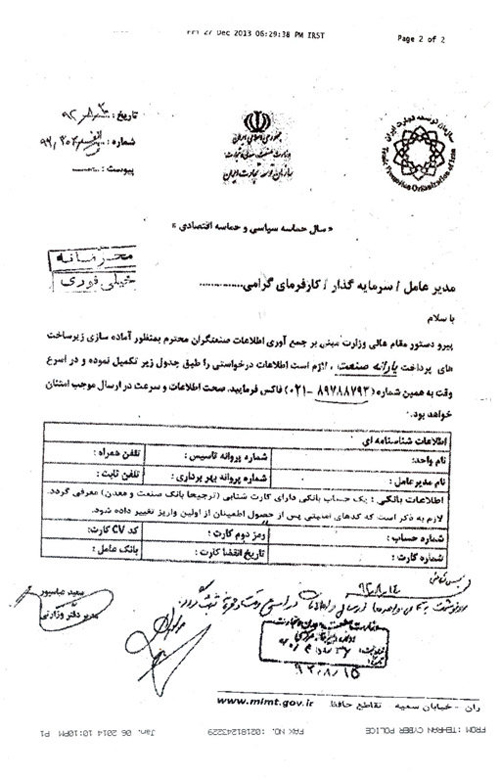 Fri 27 Dec 2013 06:29:38 PM IRST
Page 2 of 2
تاریخ :
شماره :
پیوست :
جمهوری اسلامی ایران
وزارت صنعت، معدن و تجارت
سازمان توسعه تجارت ایران
سازمان توسعه تجارت ایران
Trade Promotion Organization of Iran
« سال حماسه سیاسی و حماسه اقتصادی »
محرمانه
خیلی فوری
مدیر عامل / سرمایه گذار / کارفرمای گرامی..............
با سلام
پیرو دستور مقام عالی وزارت مبنی بر جمع آوری اطلاعات صنعتگران محترم بمنظور آماده سازی زیرساخت
های پرداخت یارانه صنعت ، لازم است اطلاعات درخواستی را طبق جدول زیر تکمیل نموده و در اسرع
وقت به همین شماره (۸۹۷۸۸۷۹۲ -۰۲۱) فاکس فرمایید. صحت اطلاعات و سرعت در ارسال موجب امتنان
خواهد بود.
اطلاعات شناسنامه ای
نام واحد: شماره پروانه تاسیس : تلفن همراه :
نام مدیر عامل : شماره پروانه بهره برداری : تلفن ثابت :
اطلاعات بانکی : یک حساب بانکی دارای کارت شتابی (ترجیحا بانک صنعت و معدن) معرفی گردد.
لازم به ذکر است که کدهای امنیتی پس از حصول اطمینان از اولین واریز تغییر داده شود.
شماره حساب : رمز دوم کارت : کد CV کارت:
شماره کارت : تاریخ انقضا کارت : بانک عامل :
سعید عباسپور
مدیر دفتر وزارتی
۹۲،۸،۱۴
۹۲/۸/۱۵
www.mimt.gov.ir
ران - خیابان سمیه تقاطع حافظ
FROM: TEHRAN CYBER POLICE FAX NO. :02181243229 Jan. 06 2014 10:10PM P1